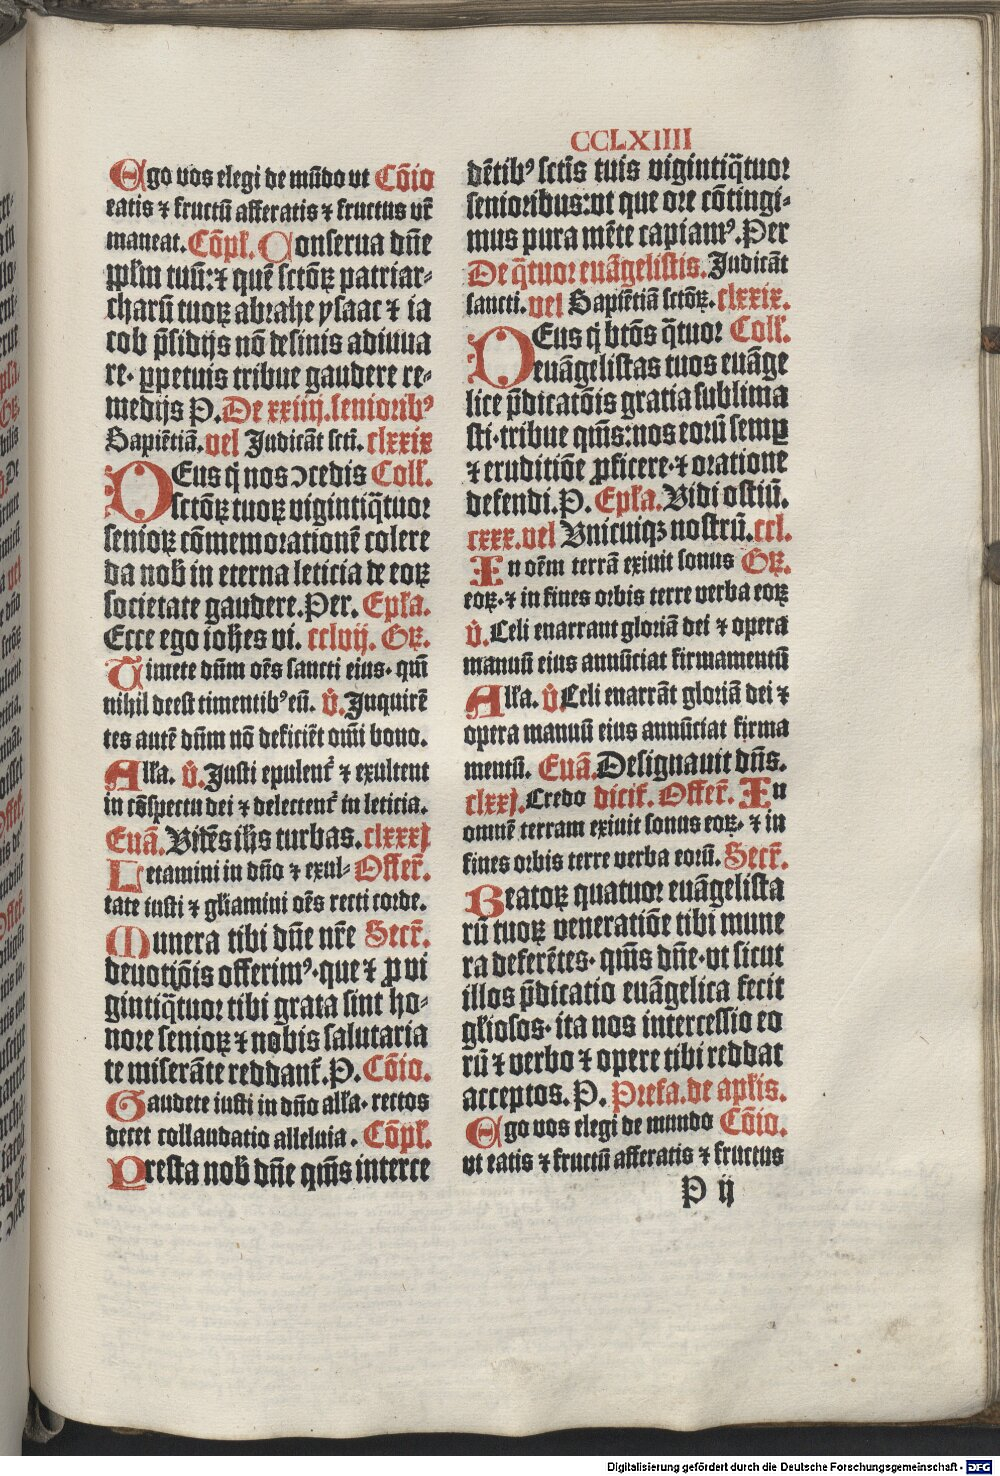 CCLXIIII
Ego vos elegi de mūdo vt Cōio
eatis ⁊ fructū afferatis ⁊ fructus vr̄
maneat. Cōpl̄. Conserua dn̄e
ppl̄m tuū: ⁊ quē sctōꝝ patriar⸗
charū tuoꝝ abrahe ysaac ⁊ ia
cob p̄sidijs nō desinis adiuua
re. ꝑpetuis tribue gaudere re⸗
medijs P. De xxiiij. senioribꝰ
Sapiētiā. vel Judicāt scti. clxxix
DEus q̄ nos ↄcedis Coll̄.
sctōꝝ tuoꝝ vigintiq̄tuor
senioꝝ cōmemorationē colere
da nob̄ in eterna leticia de eoꝝ
societate gaudere. Per. Epl̄a.
Ecce ego ioh̄es vi. cclvij. Gꝝ.
Timete dn̄m oēs sancti eius. qm̄
nihil deest timentibꝰ eū. v̄. Inquirē
tes autē dn̄m nō deficiēt om̄i bono.
All̄a. v̄. Justi epulent᷑ ⁊ exultent
in cōspectu dei ⁊ delectent᷑ in leticia.
Euā. Vidēs ih̄s turbas. clxxxj
Letamini in dn̄o ⁊ exul⸗ Offer̄.
tate iusti ⁊ gl̄iamini oēs recti corde.
Munera tibi dn̄e nr̄e Secr̄.
deuotiōis offerimꝰ. que ⁊ ꝓ vi
gintiq̄tuor tibi grata sint ho⸗
nore senioꝝ ⁊ nobis salutaria
te miserāte reddant᷑. P. Cōio.
Gaudete iusti in dn̄o all̄a. rectos
decet collaudatio alleluia. Cōpl̄.
Presta nob̄ dn̄e qm̄s interce
dētibꝰ sctis̄ tuis vigintiq̄tuor
senioribus: vt que ore cōtingi⸗
mus pura mēte capiamꝰ. Per
De q̄tuor euāgelistis. Judicāt
sancti. vel Sapiētiā sctōꝝ. clxxix.
DEus q̄ btōs q̄tuor Coll̄.
euāgelistas tuos euāge
lice p̄dicatōis gratia sublima
sti. tribue qm̄s: nos eorū semꝑ
⁊ eruditiōe ꝓficere. ⁊ oratione
defendi. P. Epl̄a. Vidi ostiū.
cxxx. vel Vnicuiqꝫ nostrū. ccl.
In oēm terrā exiuit sonus Gꝝ.
eoꝝ. ⁊ in fines orbis terre verba eoꝝ
v̄. Celi enarrant gloriā dei ⁊ opera
manuū eius annūciat firmamentū
All̄a. v̄. Celi enarrāt gloriā dei ⁊
opera manuū eius annūciat firma
mentū. Euā. Designauit dn̄s.
clxxj. Credo dicit᷑. Offer̄. In
omnē terram exiuit sonus eoꝝ. ⁊ in
fines orbis terre verba eorū. Secr̄.
Beatoꝝ quatuor euāgelista
rū tuoꝝ veneratiōe tibi mune
ra deferētes. qm̄s dn̄e. vt sicut
illos p̄dicatio euāgelica fecit
gl̄iosos. ita nos intercessio eo
rū ⁊ verbo ⁊ opere tibi reddat
acceptos. P. Prefa. de apl̄is.
Ego vos elegi de mundo Cōio.
vt eatis ⁊ fructū afferatis ⁊ fructus
P ij
Digitalisierung gefördert durch die Deutsche Forschungsgemeinschaft - DFG